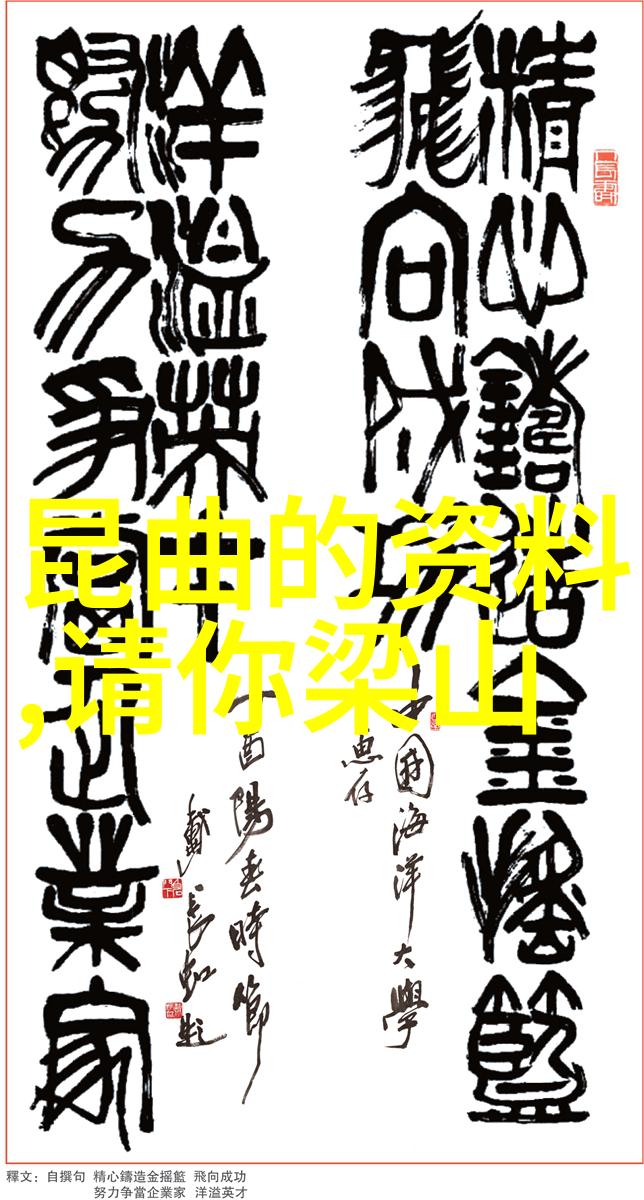 精心鑄造金搖籃
飛向成功
中國海洋大學
惠存
洋溢英才
努力爭當企業家
丁酉陽春時節
戴長虹題
昆曲的资料
,请你梁山
釋文：自撰句 精心鑄造金摇籃 飛向成功
努力争當企業家 洋溢英才